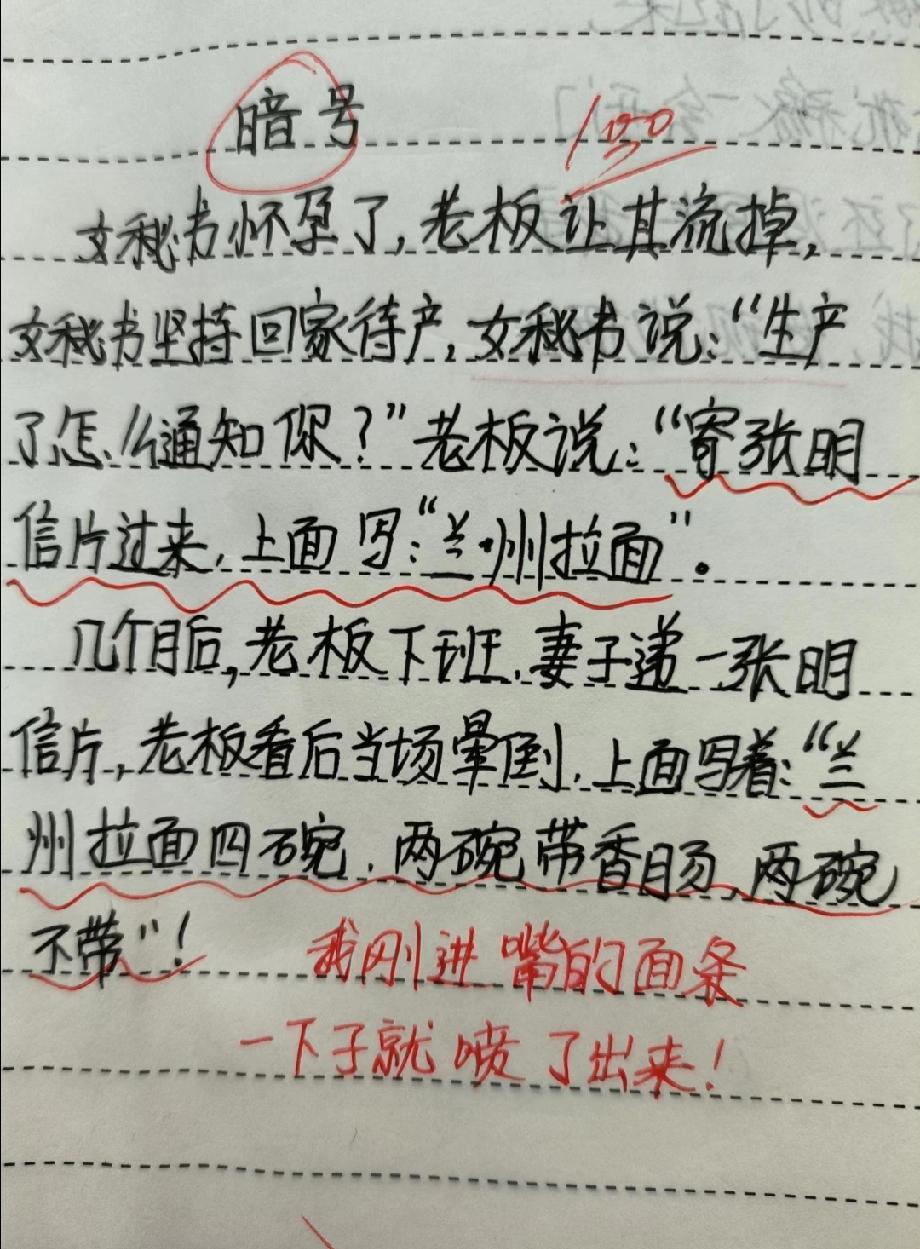 暗号
150
女秘书怀孕了,老板让其流掉,
女秘书坚持回家待产,女秘书说:“生产
了怎么通知你?”老板说:“寄张明
信片过来,上面写:“兰州拉面”.
几个月后,老板下班,妻子递一张明
信片,老板看后当场晕倒,上面写着:“兰
州拉面四碗,两碗带香肠,两碗
不带”!
我刚进嘴的面条
一下子就喷了出来!